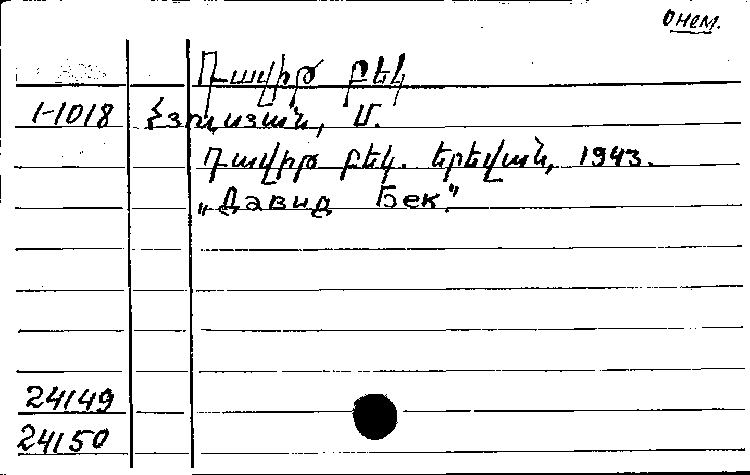 Онем.
Դավիթ բեկ
1-1018 Հյուսյան, Մ.
Դավիթ բեկ. Երեվան, 1943.
„Давид Бек."
24149
24150